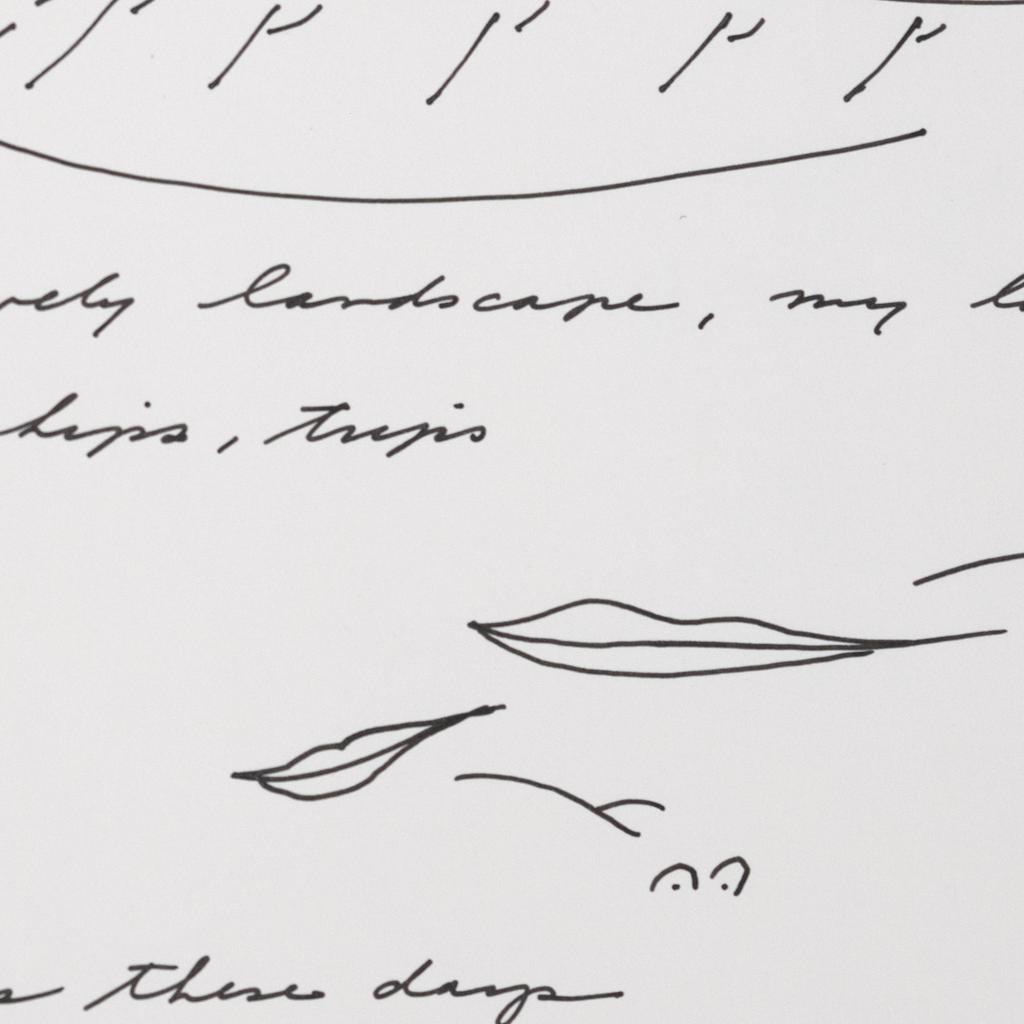 landscape, my
hips, trips
these days